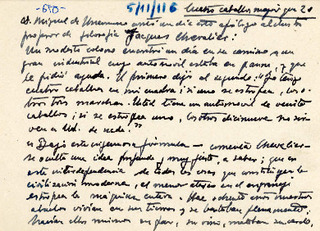 -680-
5/11/116
cuatro caballos mejor que 20
A D. Miguel de Unamuno un día este apólogo al ilustre
profesor de filosofía Jacques Chevalier:
Un modesto colono encontró un día en su camino a un
gran industrial cuyo automóvil estaba en panne, y que
le pidió ayuda. El primero dijo al segundo: "Yo tengo
cuatro caballos en mi cuadra; si uno se estropea, los o-
tros tres marchan. Usted tiene un automóvil de veinte
caballos; si se estropea uno, los otros diecinueve no sir-
ven a Ud. de nada."
Bajo esta ingeniosa fórmula — comenta Chevalier —
se oculta una idea profunda y muy justa, a saber; que en
esta interdependencia de todas las cosas que constituye la
civilización moderna, el menor en el engranaje
estropea la máquina entera. Hace ochenta años nuestros
abuelos vivían en sus tierras y se bastaban plenamente.
Hacían ellos mismos su pan, su vino, mataban su cerdo,